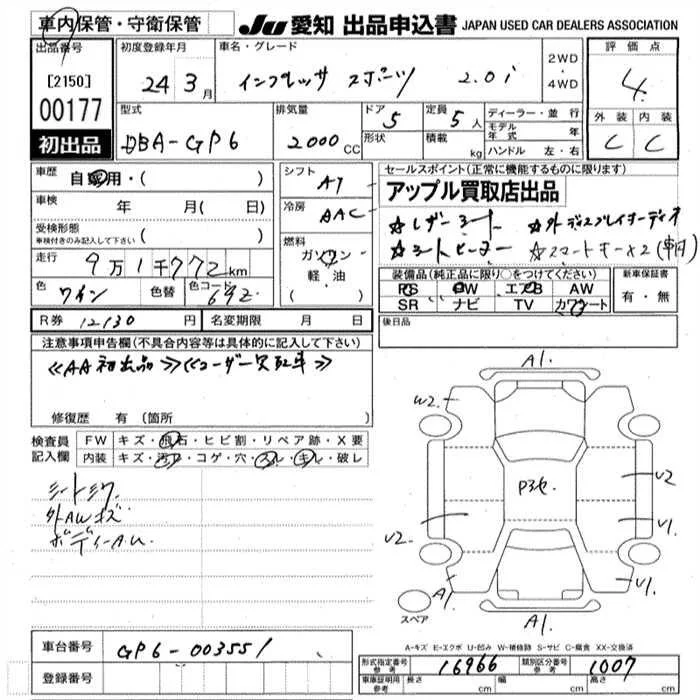 車内保管・守衛保管
JU 愛知 出品申込書 JAPAN USED CAR DEALERS ASSOCIATION
出品番号
[2150]
00177
初出品
初度登録年月
24 3月
車名・グレード
インプレッサ スポーツ 2.0i
2WD
・
4WD
評価点
4
外装 内装
C C
型式
DBA-GP6
排気量
2000CC
ドア 5
形状
定員 5人
積載 kg
ディーラー・並行
モデル年式 年
ハンドル 左・右
車歴
自家用・( )
車検
年 月( 日)
受検形態
車検付きのみ記入して下さい ( )
走行
9万1千772km
色
ワイン
色替
色コード
69Z
シフト
AT
冷房
AAC
燃料
ガソリン
軽油
( )
セールスポイント(正常に機能するものに限ります)
アップル買取店出品
☆レザーシート ☆外ディスプレイオーディオ
☆シートヒーター ☆スマートキー×2(車内)
装備品(純正品に限り○をつけてください)
PS PW エアB AW
SR ナビ TV カワシート
新車保証書
有・無
R券 12130円
名変期限 月 日
後日品
注意事項申告欄(不具合内容等は具体的に記入して下さい)
≪AA初出品≫≪ユーザー買取車≫
修復歴 有 (箇所 )
検査員記入欄
FW キズ・飛石・ヒビ割・リペア跡・X要
内装 キズ・汚れ・コゲ・穴・スレ・キレ・破レ
シートシワ
外AWキズ
ボディーA.U.
A1.
W2.
P3セ.
V2
V1
V2.
A1
V1.
A1.
スペア
A-キズ E-エクボ U-凹み W-補修跡 S-サビ C-腐食 XX-交換済
車台番号
GP6-003551
登録番号
形式指定番号 参考
16966
類別区分番号 参考
1007
車庫証明用 参考
長さ cm
幅 cm
高さ cm